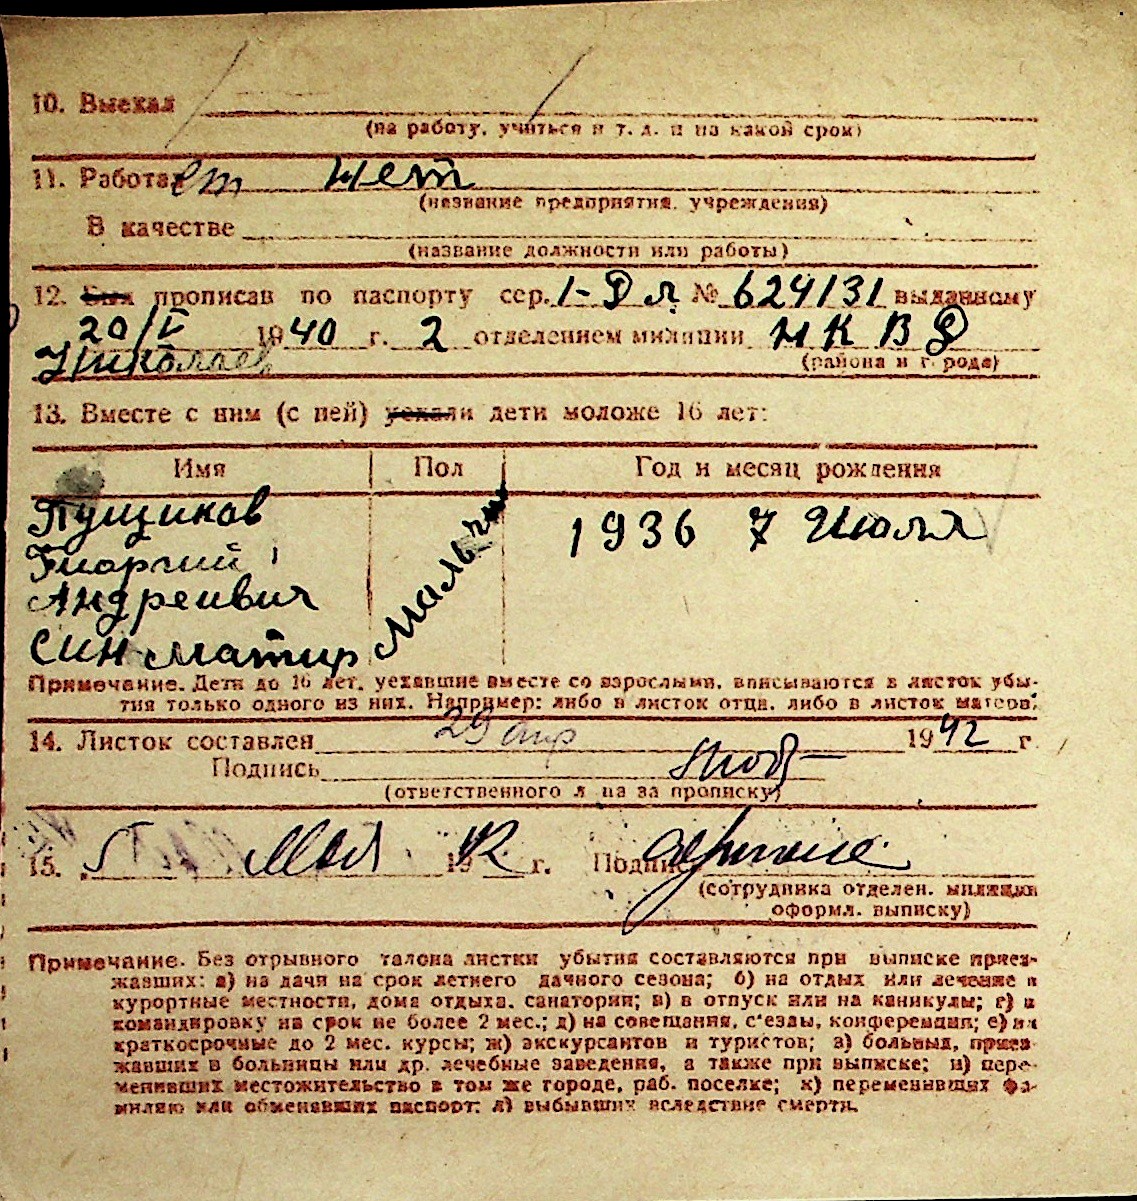 10. Выехал
(на работу, учиться и т. д. и на какой срок)
11. Работает нет
(название предприятия, учреждения)
В качестве
(название должности или работы)
12. Был прописан по паспорту сер. 1-Дл № 624131 выданному
20/V 1940 г. 2 отделением милиции НКВД
Николаев (района и города)
13. Вместе с ним (с ней) уехали дети моложе 16 лет:
Имя Пол Год и месяц рождения
Пущиков Мальчик 1936 7 Июля
Гиоргий
Андреивич
Син матир
Примечание. Дети до 16 лет, уехавшие вместе со взрослыми, вписываются в листок убы-
тия только одного из них. Например: либо в листок отца, либо в листок матери.
14. Листок составлен 29 апр 1942 г.
Подпись
(ответственного л-ца за прописку)
15. 5 Мая 1942 г. Подпись
(сотрудника отделен. милиции
оформл. выписку)
Примечание. Без отрывного талона листки убытия составляются при выписке приез-
жавших: а) на дачи на срок летнего дачного сезона; б) на отдых или лечение в
курортные местности, дома отдыха, санатории; в) в отпуск или на каникулы; г) в
командировку на срок не более 2 мес.; д) на совещания, с'езды, конференции; е) на
краткосрочные до 2 мес. курсы; ж) экскурсантов и туристов; з) больных, приез-
жавших в больницы или др. лечебные заведения, а также при выписке; и) пере-
менивших местожительство в том же городе, раб. поселке; к) переменивших фа-
милию или обменявших паспорт; л) выбывших вследствие смерти.